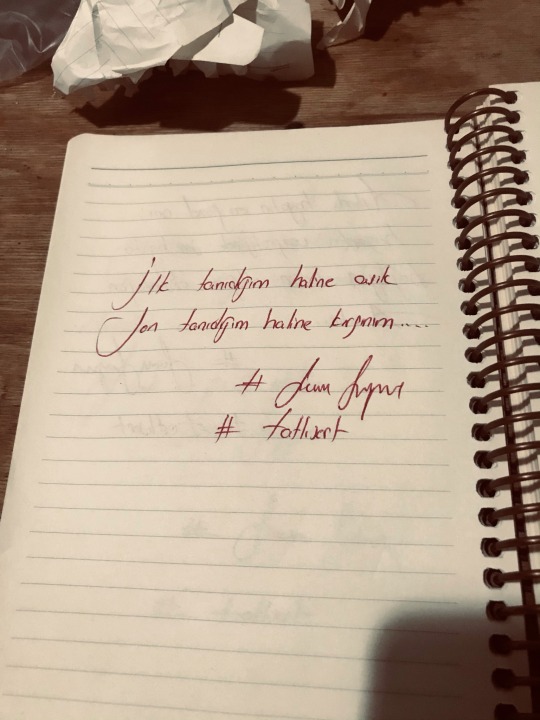 İlk tanıdığım haline aşık
Son tanıdığım haline kırgınım....
#
# tatlisert